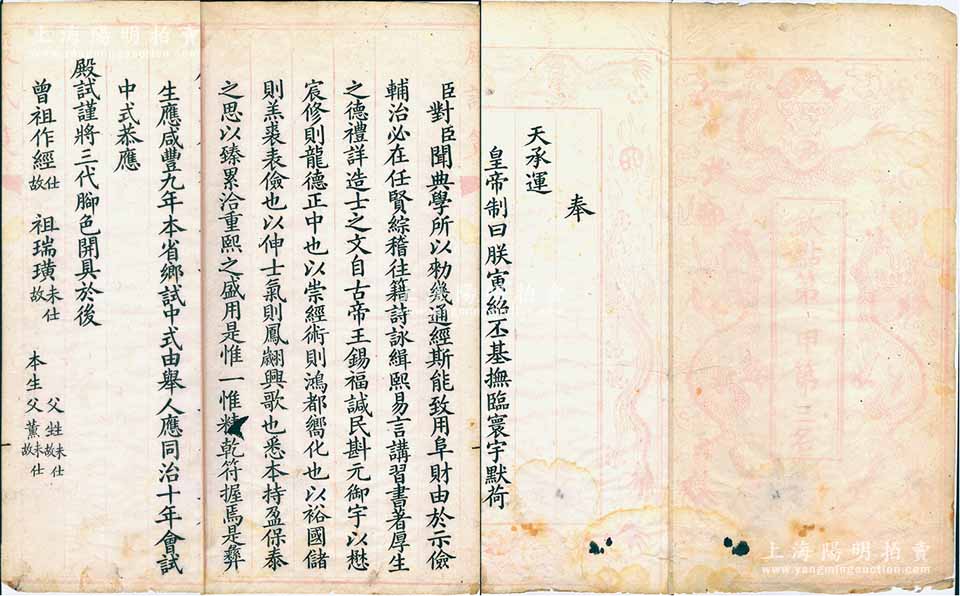 奉
天承運
皇帝制曰朕寅紹丕基撫臨寰宇默荷
臣對臣聞典學所以勑幾通經斯能致用阜財由於示儉
輔治必在任賢綜稽往籍詩詠緝熙易言講習書著厚生
之德禮詳造士之文自古帝王錫福諴民斟元御宇以懋
宸修則龍德正中也以崇經術則鴻都嚮化也以裕國儲
則羔裘表儉也以伸士氣則鳳翽興歌也悉本持盈保泰
之思以臻累洽重熙之盛用是惟一惟精乾符握焉是彝
生應咸豐九年本省鄉試中式由舉人應同治十年會試
中式恭應
殿試謹將三代腳色開具於後
曾祖作經 仕 故 祖瑞璜 未仕 故 本生 父 甡 未仕 故 父 薰 未仕 故
上海陽明拍賣
上海陽明拍賣
www.yangmingauction.com